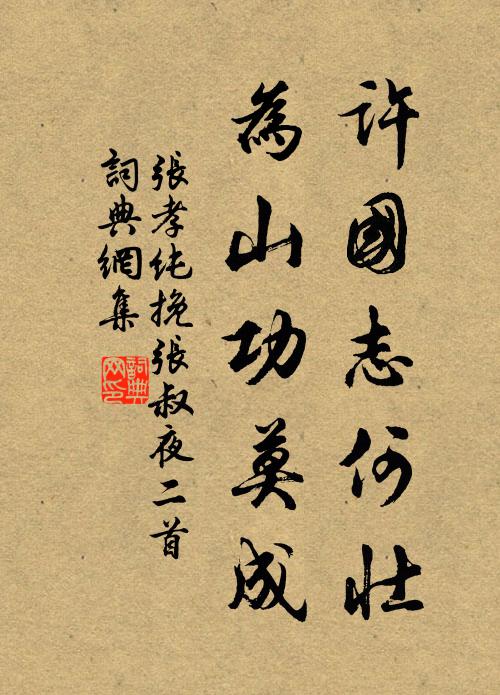 許國志何壯
為山功莫成
張孝純挽張叔夜二首
詞典網集
詞典
网印